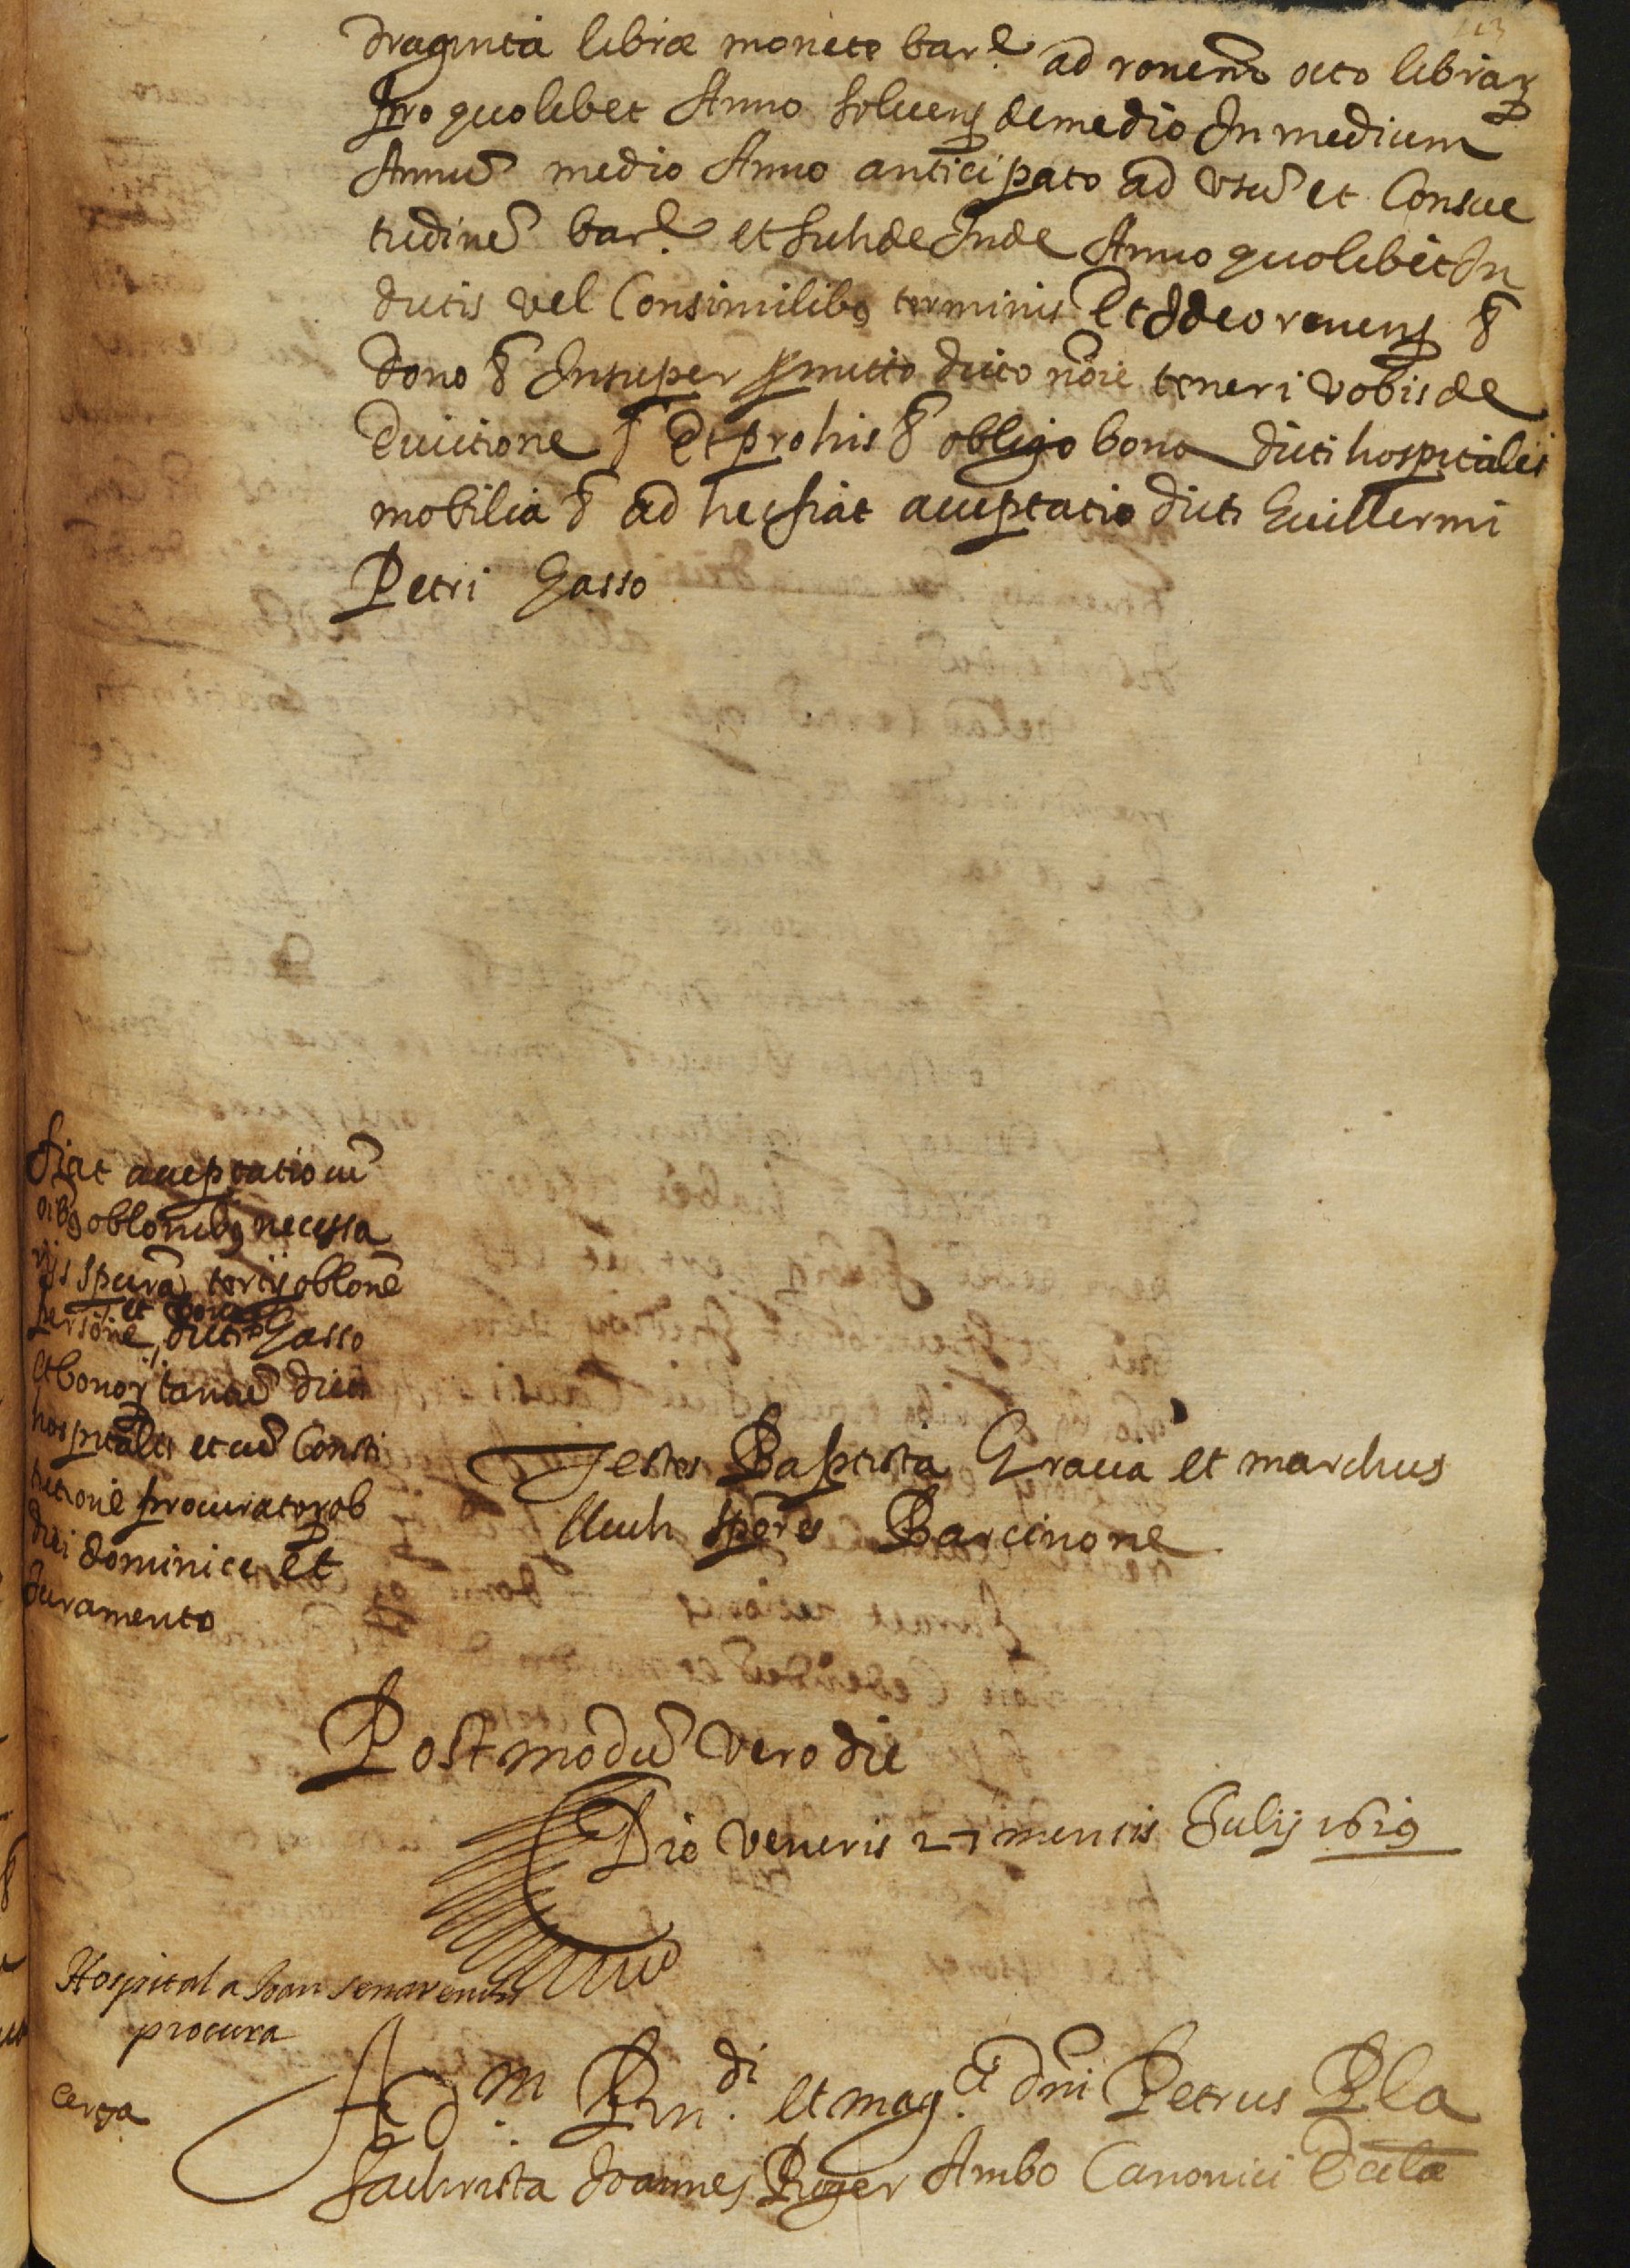 draginta libræ monete barᵉ ad ronem̃ octo librar
pro quolibet Anno solvens de medio In medium
Annũ medio Anno anticipato ad usũ et Consue
tudinẽ barᵉ et subde Inde Anno quolibet In
dictis vel Consimilibꝰ terminis Et Ideo renens &
dono & Insuper ꝓmitto dicto nõie teneri vobis de
evictione & Et pro his & obligo bona dicti hospitalis
mobilia & ad hec fiat acceptatio dicti Guillermi
Petri Gasso
fiat acceptatio cũ
oibꝰ oblonibꝰ necessa
rijs tertij oblonẽ
persone, et dicti Gasso
et bonoꝝ dicti
hospitalis et cũ Consti
tutione procuratoꝝ ob
diei dominice et
Juramento
Testes Baptista Gravia et marchus
lluch Barcinone
Postmodũ vero die
Die Veneris 27 mensis Julij 1629
Hospital a Joan
procura
certa
Adm. Rn.di et mag.ci dñi Petrus Pla
Sachrista Joannes Roger Ambo Canonici Eccla